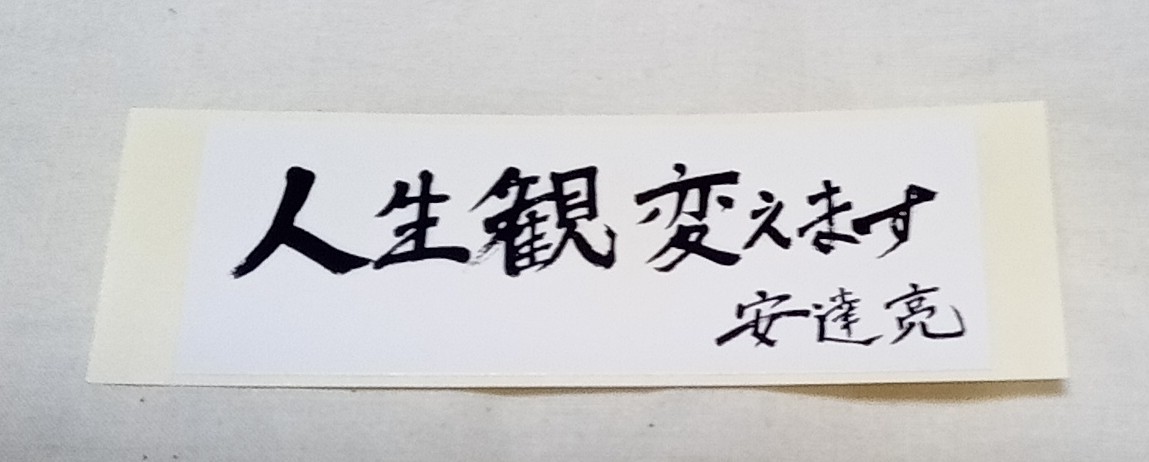 人生観変えます
安達亮